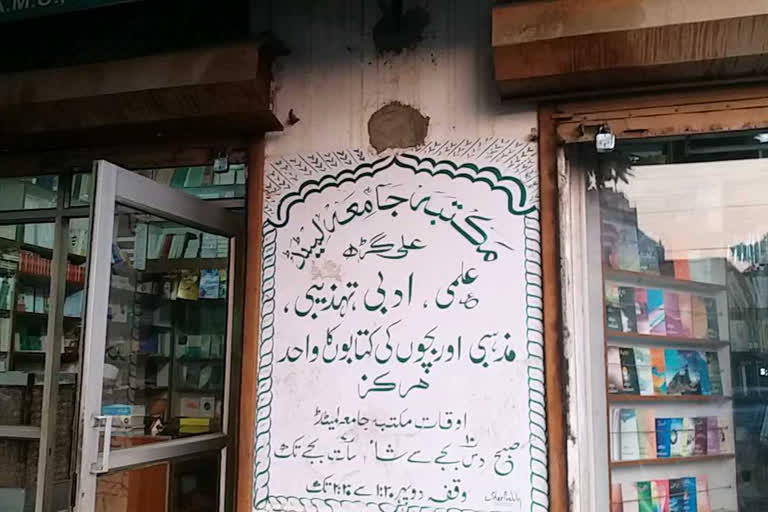 A.M.U.,
مکتبہ جامعہ لمیٹڈ
علی گڑھ
علمی، ادبی، تہذیبی،
مذہبی اور بچوں کی کتابوں کا واحد
مرکز
اوقات مکتبہ جامعہ لمیٹڈ
صبح دس ۱۰ بجے سے شام سات ۷ بجے تک
وقفہ دوپہر ۱:۳۰ سے ۲:۳۰ تک